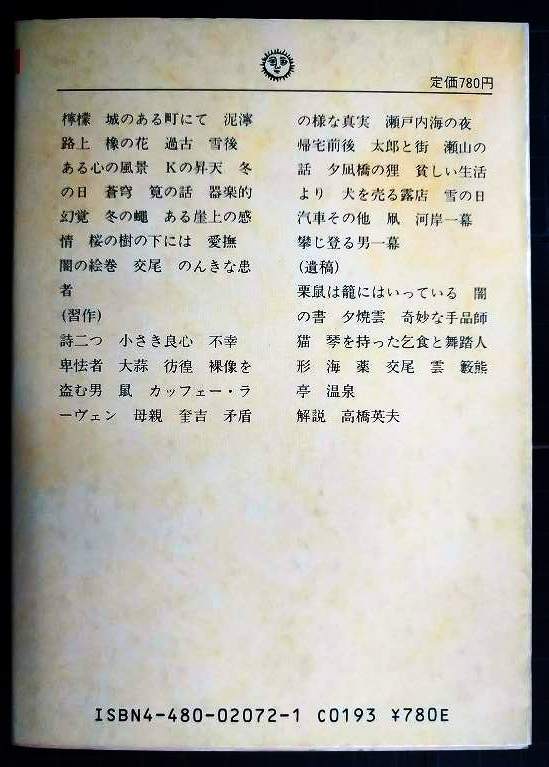 定価780円
檸檬　城のある町にて　泥濘
路上　橡の花　過古　雪後
ある心の風景　Kの昇天　冬
の日　蒼穹　筧の話　器楽的
幻覚　冬の蠅　ある崖上の感
情　桜の樹の下には　愛撫
闇の絵巻　交尾　のんきな患
者
(習作)
詩二つ　小さき良心　不幸
卑怯者　大蒜　彷徨　裸像を
盗む男　鼠　カッフェー・ラ
ーヴェン　母親　奎吉　矛盾
の様な真実　瀬戸内海の夜
帰宅前後　太郎と街　瀬山の
話　夕凪橋の狸　貧しい生活
より　犬を売る露店　雪の日
汽車その他　凧　河岸一幕
攀じ登る男一幕
(遺稿)
栗鼠は籠にはいっている　闇
の書　夕焼雲　奇妙な手品師
猫　琴を持った乞食と舞踏人
形　海　薬　交尾　雲　籔熊
亭　温泉
解説　高橋英夫
ISBN4-480-02072-1 C0193 ¥780E